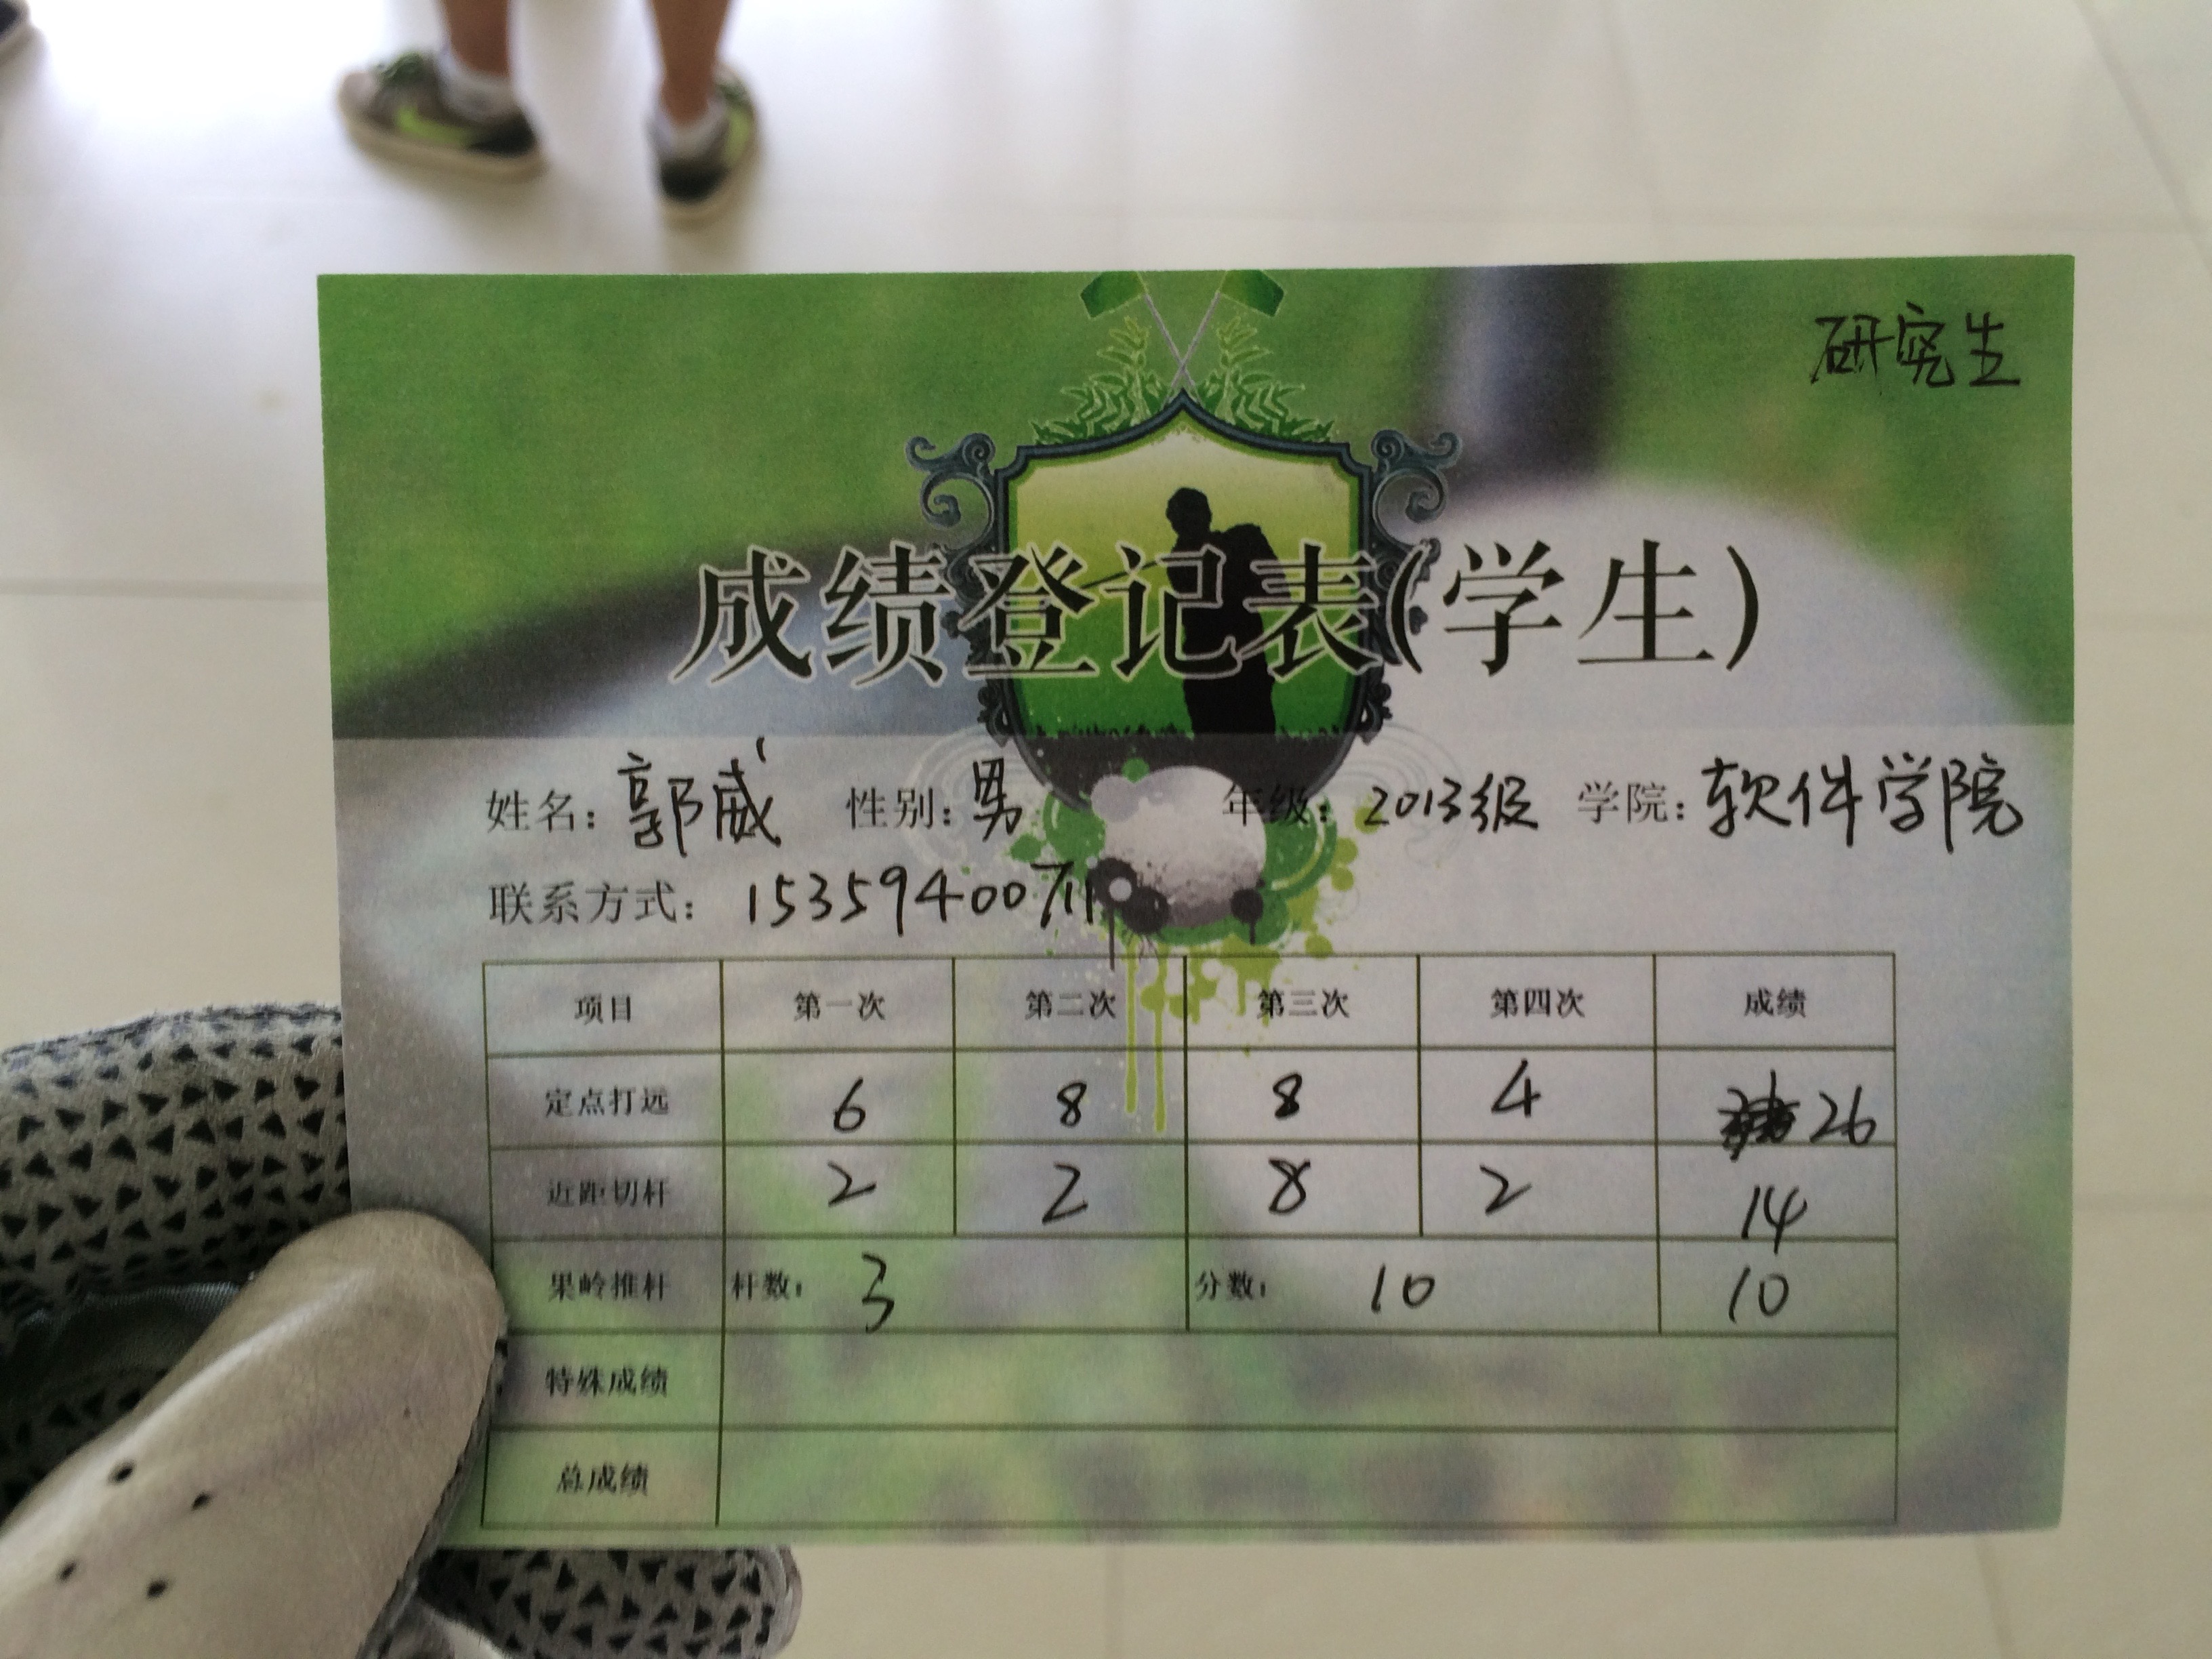 研究生
成绩登记表(学生)
姓名: 郭威 性别: 男 年级: 2013级 学院: 软件学院
联系方式: 15359400711
项目 第一次 第二次 第三次 第四次 成绩
定点打远 6 8 8 4 26
近距切杆 2 2 8 2 14
果岭推杆 杆数: 3 分数: 10 10
特殊成绩
总成绩